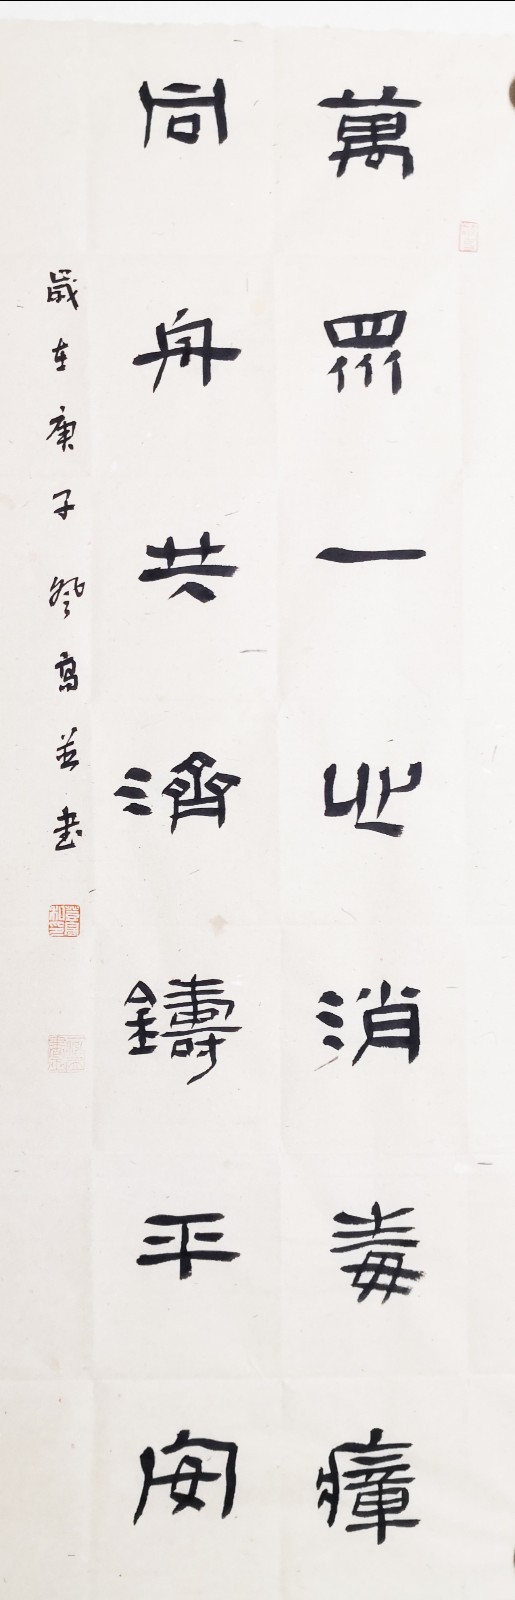 萬眾一心消毒瘴
同舟共濟鑄平安
歲在庚子登高並書